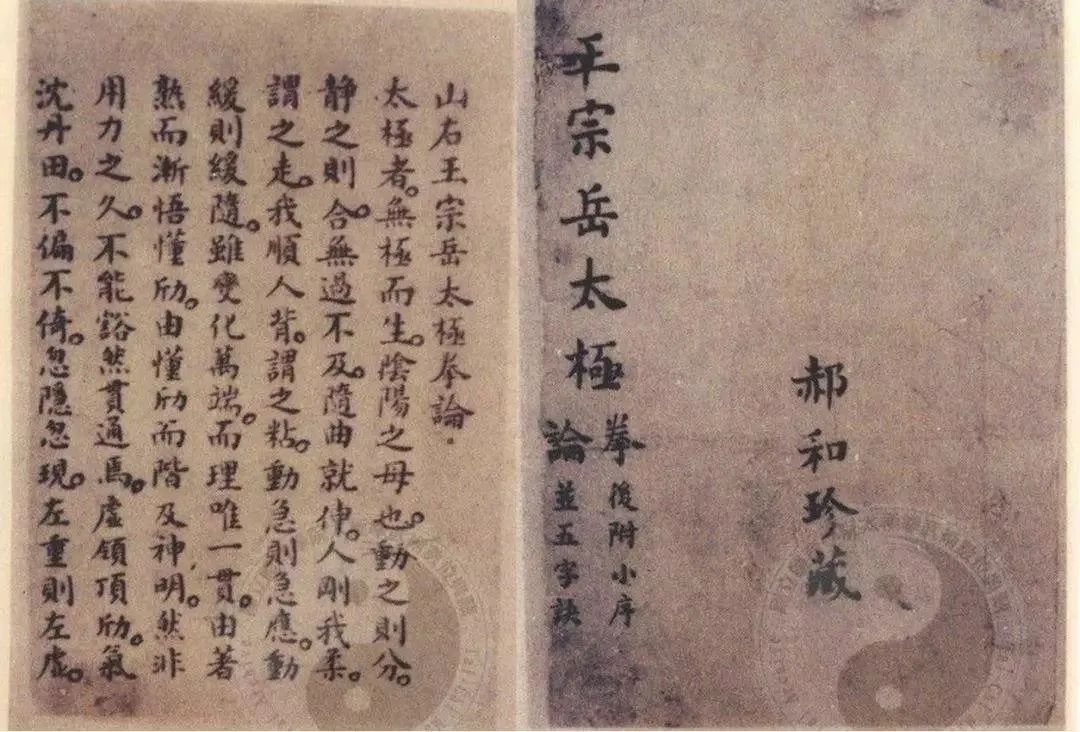 郝和珍藏
宗岳太極
拳後附小序
論並五字訣
山右王宗岳太極拳論。
太極者。無極而生。陰陽之母也。動之則分。
静之則合。無過不及。隨曲就伸。人剛我柔。
謂之走。我順人背。謂之粘。動急則急應。動
緩則緩隨。雖變化萬端。而理唯一貫。由著
熟而漸悟懂劤。由懂劤而階及神明。然非
用力之久。不能豁然貫通焉。虛領頂劤。氣
沈丹田。不偏不倚。忽隱忽現。左重則左虛。